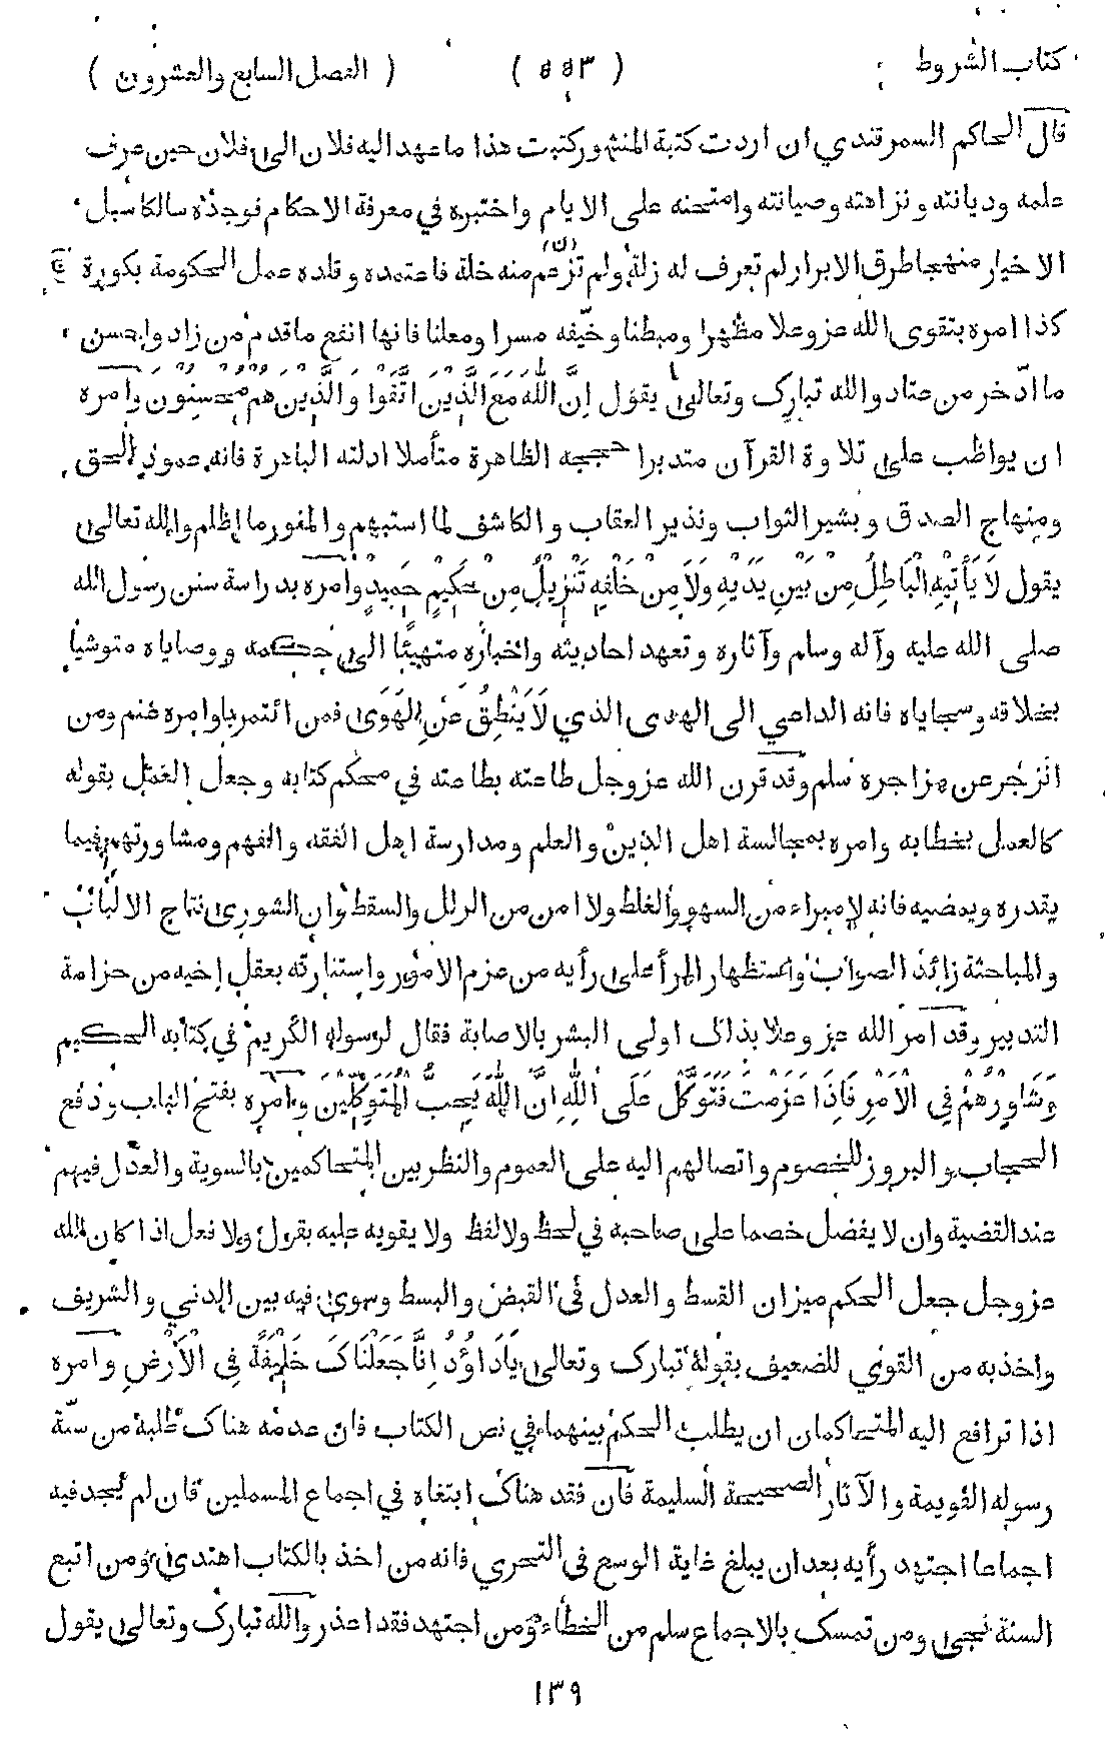 كتاب الشروط ( ٥٥٣ ) ( الفصل السابع والعشرون )
قال الحاكم السمرقندي ان اردت كتبة المنشور كتبت هذا ما عهد اليه فلان الى فلان حين عرف
علمه وديانته ونزاهته وصيانته وامتحنه على الايام واختبره في معرفة الاحكام فوجده سالكا سبل
الاخيار منهجا طرق الابرار لم تعرف له زلة ولم تزعم منه خلة فاعتمده وقلده عمل الحكومة بكورة
كذا امره بتقوى الله عز وعلا مظهرا ومبطنا وخيفه مسرا ومعلنا فانها انفع ما قدم من زاد واحسن
ما ادّخر من عتاد والله تبارك وتعالى يقول اِنَّ اللّٰهَ مَعَ الَّذِيْنَ اتَّقَوْا وَالَّذِيْنَ هُمْ مُحْسِنُوْنَ وامره
ان يواظب على تلاوة القرآن متدبرا حججه الظاهرة متأملا ادلته الباهرة فانه عمود الحق
ومنهاج الصدق وبشير الثواب ونذير العقاب والكاشف لما استبهم والمنور ما اظلم والله تعالى
يقول لَا يَأْتِيْهِ الْبَاطِلُ مِنْ بَيْنِ يَدَيْهِ وَلَا مِنْ خَلْفِهِ تَنْزِيْلٌ مِنْ حَكِيْمٍ حَمِيْدٍ وامره بدراسة سنن رسول الله
صلى الله عليه وآله وسلم وآثاره وتعهد احاديثه واخباره متهيئا الى حكمه ووصاياه متوشيا
بخلاقه وسجاياه فانه الداعي الى الهدى الذي لَا يَنْطِقُ عَنِ الْهَوَى فمن ائتمر باوامره غنم ومن
انزجر عن مزاجره سلم وقد قرن الله عز وجل طاعته بطاعته في محكم كتابه وجعل العمل بقوله
كالعمل بخطابه وامره بمجالسة اهل الدين والعلم ومدارسة اهل الفقه والفهم ومشاورتهم فيما
يقدره ويمضيه فانه لا مبراء من السهو والغلط ولا امن من الزلل والسقط وان الشورى نتاج الالباب
والمباحثة زائد الصواب واستظهار المرأ على رأيه من عزم الامور واستنارته بعقل اخيه من حزامة
التدبير وقد امر الله عز وعلا بذاك اولى البشر بالاصابة فقال لرسوله الكريم في كتابه الحكيم
وَشَاوِرْهُمْ فِي الْاَمْرِ فَاِذَا عَزَمْتَ فَتَوَكَّلْ عَلَى اللّٰهِ اِنَّ اللّٰهَ يُحِبُّ الْمُتَوَكِّلِيْنَ وامره بفتح الباب ودفع
الحجاب والبروز للخصوم واتصالهم اليه على العموم والنظر بين المتحاكمين بالسوية والعدل فيهم
عند القضية وان لا يفضل خصما على صاحبه في لحظ ولا لفظ ولا يقويه عليه بقول ولا فعل اذا كان الله
عز وجل جعل الحكم ميزان القسط والعدل في القبض والبسط وسوى فيه بين الدني والشريف
واخذ به من القوي للضعيف بقوله تبارك وتعالى يَادَاوُدُ اِنَّا جَعَلْنَاكَ خَلِيْفَةً فِي الْاَرْضِ وامره
اذا ترافع اليه المتحاكمان ان يطلب الحكم بينهما في نص الكتاب فان عدمه هناك طلبه من سنّة
رسوله القويمة والآثار الصحيحة السليمة فان فقد هناك ابتغاه في اجماع المسملين فان لم يجد فيه
اجماعا اجتهد رأيه بعد ان يبلغ غاية الوسع في التحري فانه من اخذ بالكتاب اهتدى ومن اتبع
السنة نجى ومن تمسك بالاجماع سلم من الخطاء ومن اجتهد فقد اعذر والله تبارك وتعالى يقول
١٣٩